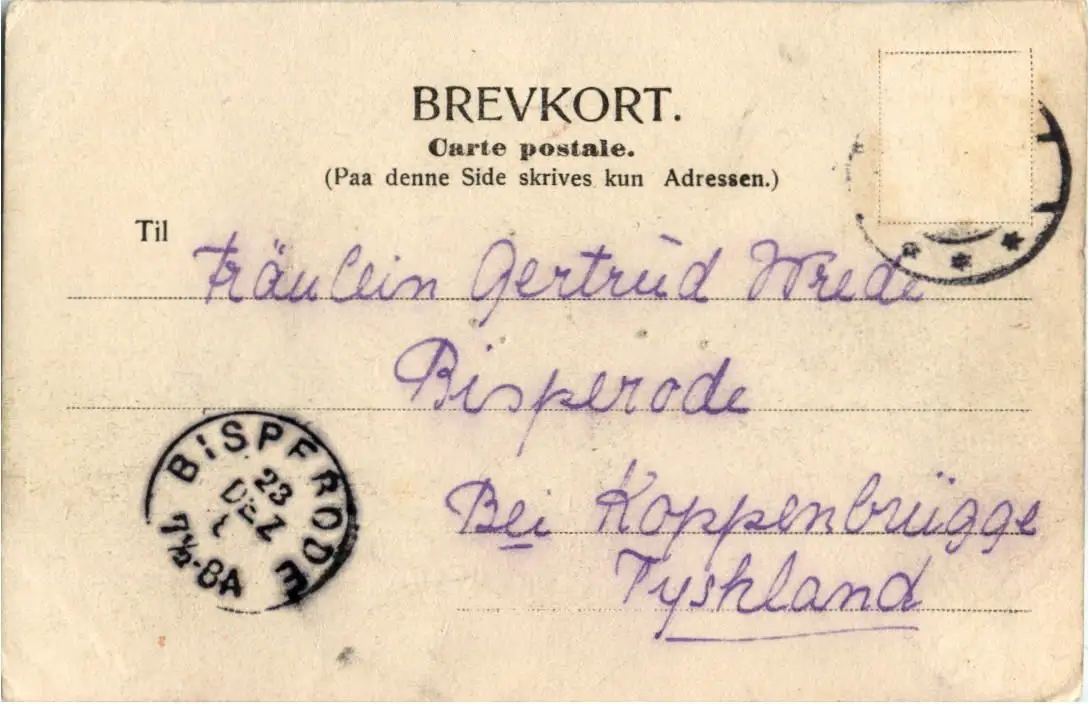 BREVKORT.
Carte postale.
(Paa denne Side skrives kun Adressen.)
Til
Fräulein Gertrud Wrede
Bisperode
Bei Koppenbrügge
Tyskland
BISPERODE
23
DEZ
7½-8A